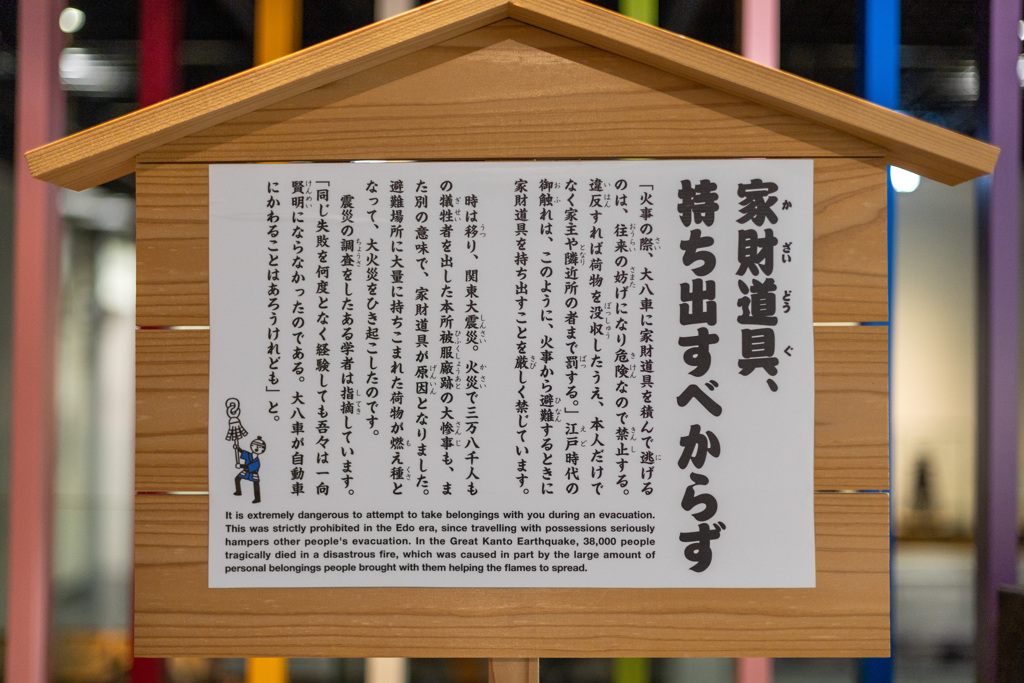 家財道具、
持ち出すべからず
「火事の際、大八車に家財道具を積んで逃げる
のは、往来の妨げになり危険なので禁止する。
違反すれば荷物を没収したうえ、本人だけで
なく家主や隣近所の者まで罰する。」江戸時代の
御触れは、このように、火事から避難するときに
家財道具を持ち出すことを厳しく禁じています。
時は移り、関東大震災。火災で三万八千人も
の犠牲者を出した本所被服廠跡の大惨事も、ま
た別の意味で、家財道具が原因となりました。
避難場所に大量に持ちこまれた荷物が燃え種と
なって、大火災をひき起こしたのです。
震災の調査をしたある学者は指摘しています。
「同じ失敗を何度となく経験しても吾々は一向
賢明にならなかったのである。大八車が自動車
にかわることはあろうけれども」と。
It is extremely dangerous to attempt to take belongings with you during an evacuation.
This was strictly prohibited in the Edo era, since travelling with possessions seriously
hampers other people's evacuation. In the Great Kanto Earthquake, 38,000 people
tragically died in a disastrous fire, which was caused in part by the large amount of
personal belongings people brought with them helping the flames to spread.